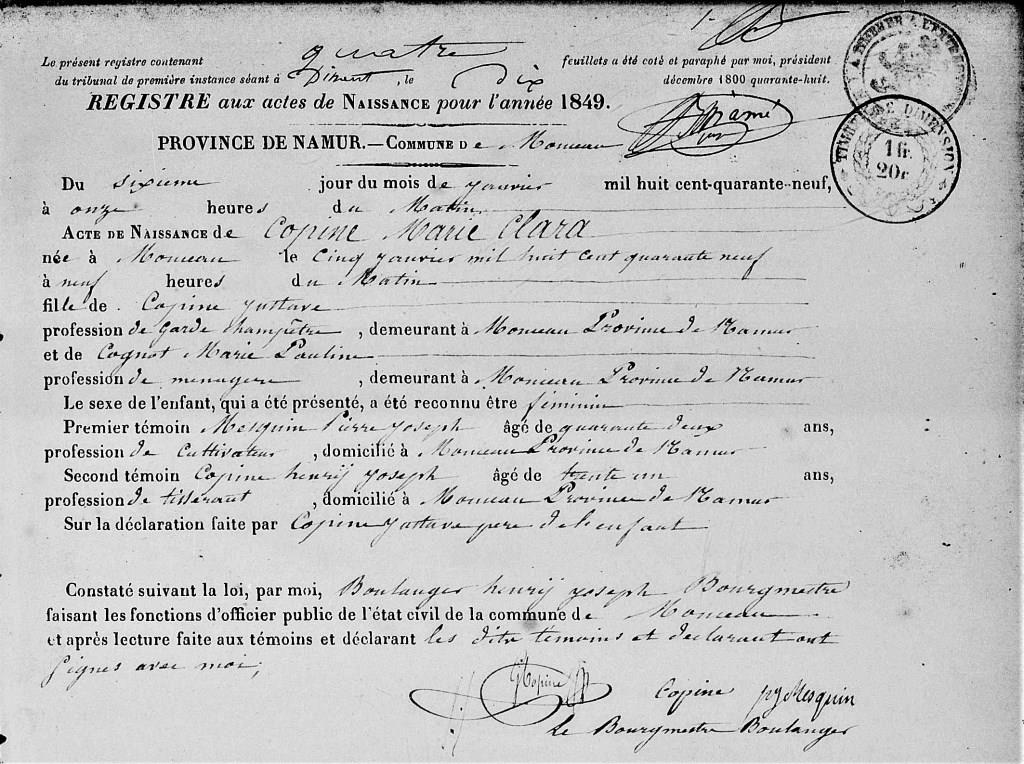 Le présent registre contenant quatre feuillets a été coté et paraphé par moi, président
du tribunal de première instance séant à Dinant, le dix décembre 1800 quarante-huit.
REGISTRE aux actes de NAISSANCE pour l'année 1849.
PROVINCE DE NAMUR.—COMMUNE De Monceau
TIMBRE DE DIMENSION
1 fr.
20 c.
Du sixieme jour du mois de janvier mil huit cent-quarante-neuf,
à onze heures du Matin
ACTE DE NAISSANCE de Copine Marie Clara
née à Monceau le cinq janvier mil huit cent quarante neuf
à neuf heures du Matin
fille de Copine
profession de Garde Champêtre, demeurant à Monceau Province de Namur
et de Cognot Marie Pauline
profession de menagere, demeurant à Monceau Province de Namur
Le sexe de l'enfant, qui a été présenté, a été reconnu être féminin
Premier témoin Mesquin Pierre Joseph âgé de quarante deux ans,
profession de Cultivateur, domicilié à Monceau Province de Namur
Second témoin Copine henrij joseph âgé de trente un ans,
profession de tisserant, domicilié à Monceau Province de Namur
Sur la déclaration faite par Copine pere de l'enfant
Constaté suivant la loi, par moi, Boulanger henrij joseph Bourgmestre
faisant les fonctions d'officier public de l'état civil de la commune de Monceau
et après lecture faite aux témoins et déclarant les dits témoins et declarant ont
signes avec moi;
Copine Copine pj Mesquin
Le Bourgmestre Boulanger